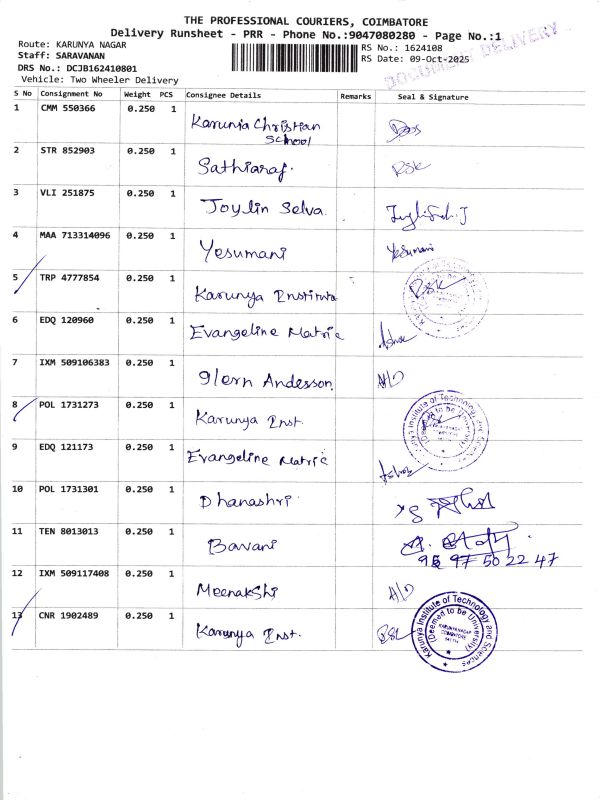 THE PROFESSIONAL COURIERS, COIMBATORE
Delivery Runsheet - PRR - Phone No.:9047080280 - Page No.:1
Route: KARUNYA NAGAR
RS No.: 1624108
Staff: SARAVANAN
RS Date: 09-Oct-2025
DOCUMENT DELIVERY
DRS No.: DCJB162410801
Vehicle: Two Wheeler Delivery
S No Consignment No Weight PCS Consignee Details Remarks Seal & Signature
1 CMM 550366 0.250 1 Karunia Christian
School
2 STR 852903 0.250 1 Sathiaraj. RSK
3 VLI 251875 0.250 1 Joylin Selva
4 MAA 713314096 0.250 1 Yesumani Yesumani
5 TRP 4777854 0.250 1 Karunya Institute RSK
6 EDQ 120960 0.250 1 Evangeline Matric
7 IXM 509106383 0.250 1 Glern Andesson A/D
8 POL 1731273 0.250 1 Karunya Inst. Karunya Institute of Technology and Sciences (Deemed to be University)
9 EDQ 121173 0.250 1 Evangeline Matric
10 POL 1731301 0.250 1 Dhanashri
11 TEN 8013013 0.250 1 Bavani
95 97 50 22 47
12 IXM 509117408 0.250 1 Meenakshi A/D
13 CNR 1902489 0.250 1 Karunya Inst. RSK Karunya Institute of Technology and Sciences (Deemed to be University) KARUNYANAGAR COIMBATORE 641114